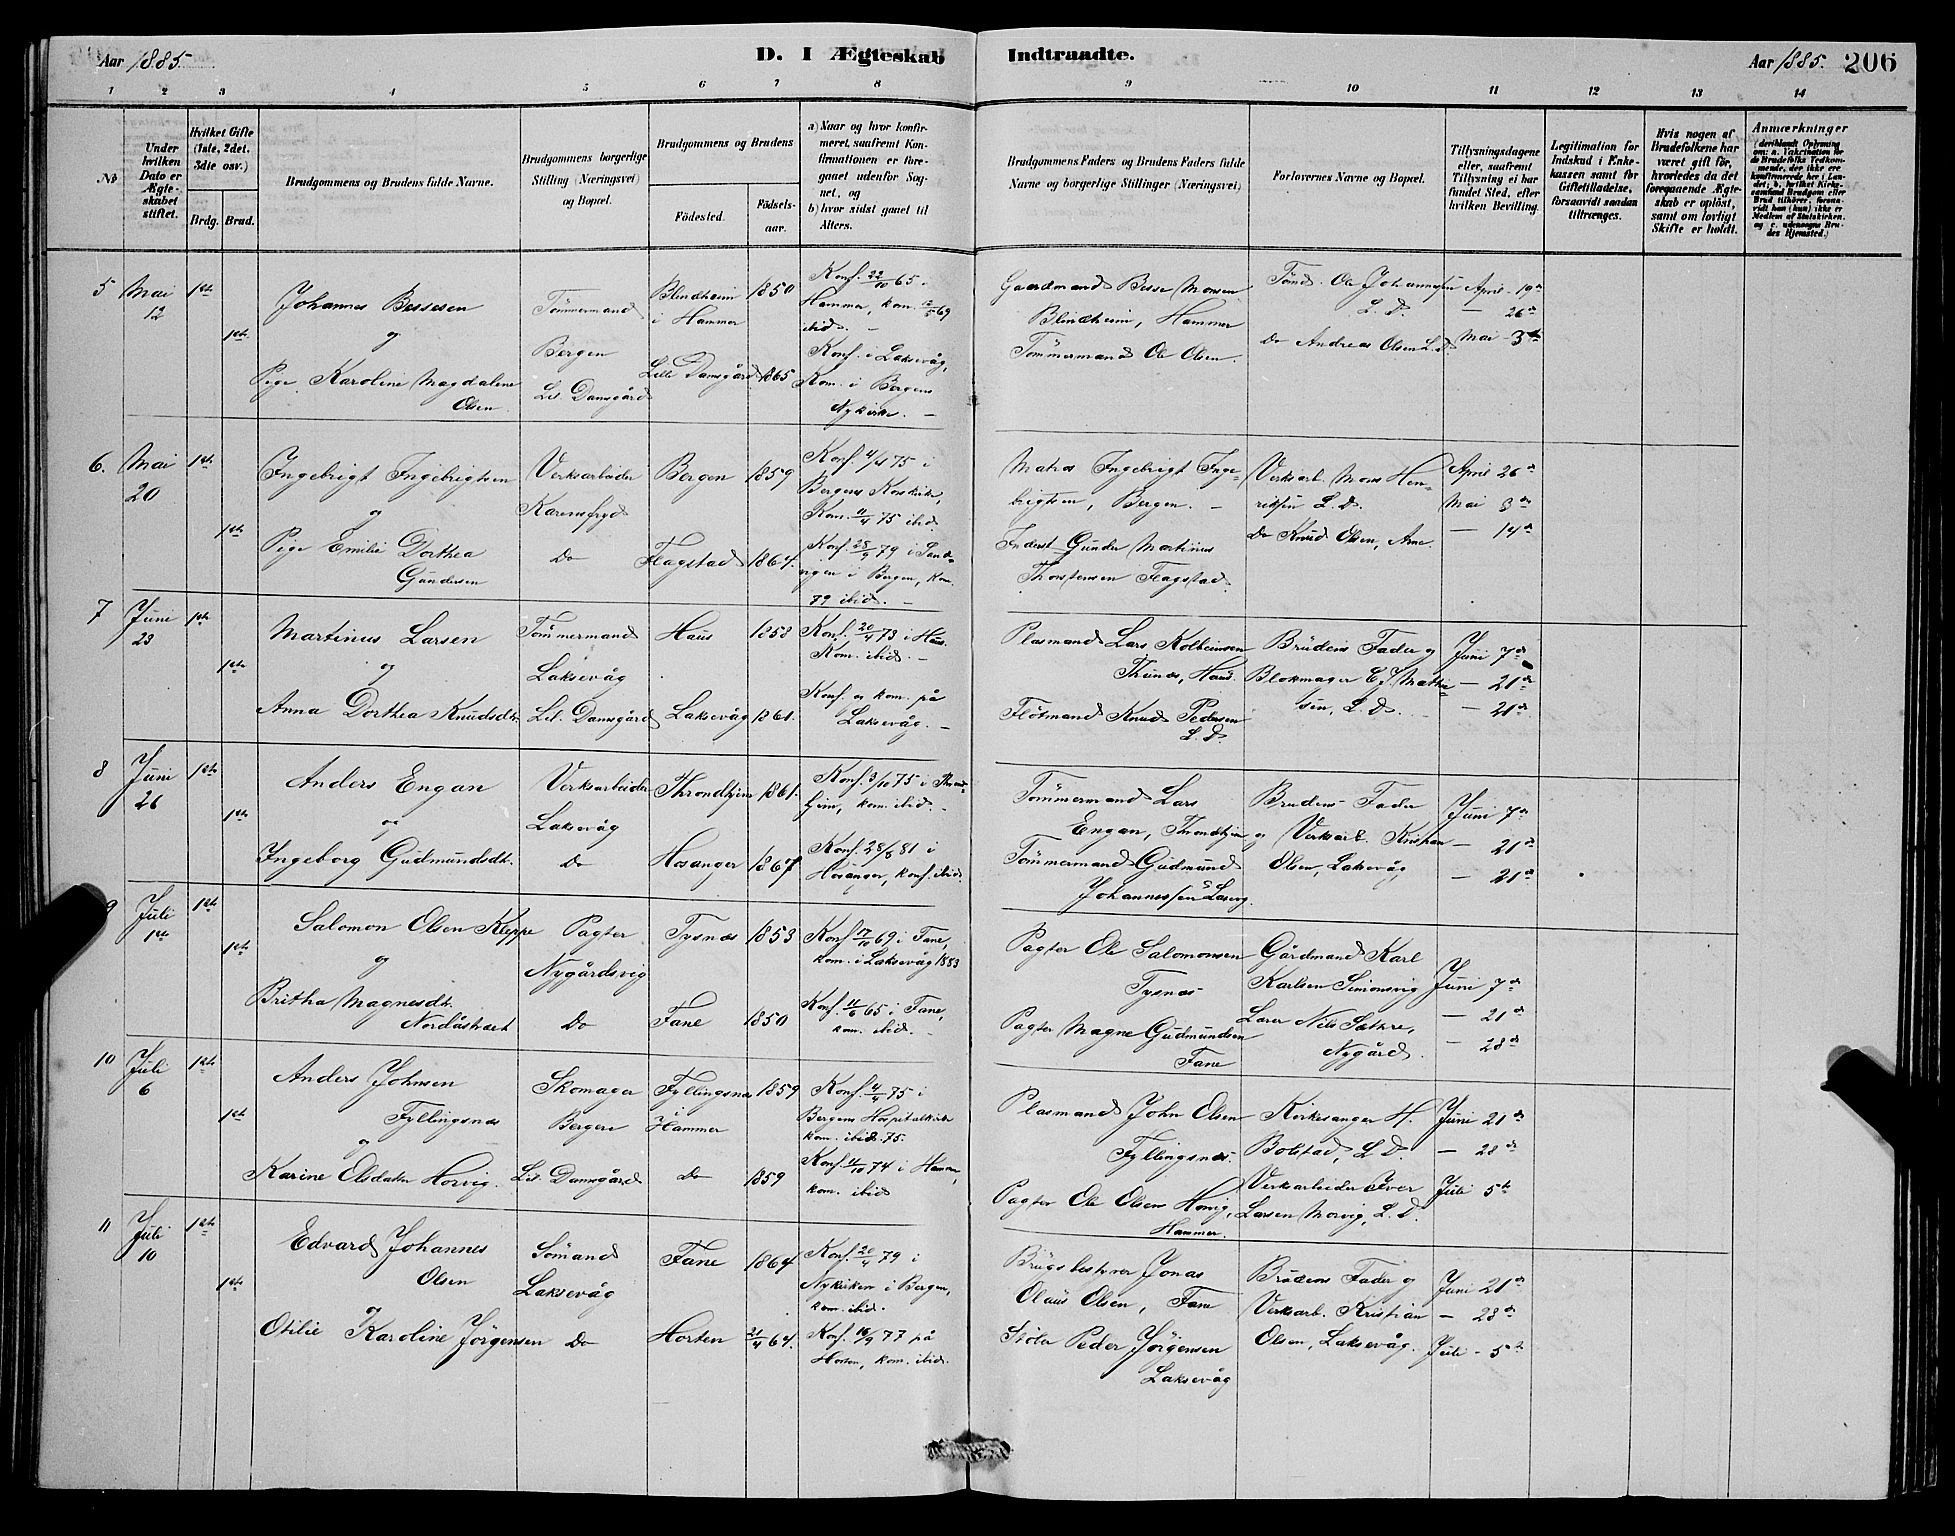 Aar 1885. D. I Ægteskab Indtraadte. Aar 1885. 206
1 2 3 4 5 6 7 8 9 10 11 12 13 14
№
Under hvilken Dato er Ægteskabet stiftet.
Hvilket Gifte (1ste, 2det. 3die osv.)
Brdg. Brud.
Brudgommens og Brudens fulde Navne.
Brudgommens borgerlige Stilling (Næringsvei) og Bopæl.
Brudgommens og Brudens
Fødested. Fødsels-aar.
a) Naar og hvor konfirmeret, saafremt Konfirmationen er foregaaet udenfor Sognet, og
b) hvor sidst gaaet til Alters.
Brudgommens Faders og Brudens Faders fulde Navne og borgerlige Stillinger (Næringsvei)
Forlovernes Navne og Bopæl.
Tillysningsdagene eller, saafremt Tillysning ei har fundet Sted, efter hvilken Bevilling.
Legitimation for Indskud i Enkekassen samt for Giftetilladelse, forsaavidt saadan tiltrænges.
Hvis nogen af Brudefolkene har været gift før, hvorledes da det foregaaende Ægteskab er opløst, samt om lovligt Skifte er holdt.
Anmærkninger
(deriblandt Oplysning om: a. Vakcination for de Brudefolks Vedkommende, der ikke ere konfirmerede her i Landet; b. hvilket Kirkesamfund Brudgom eller Brud tilhører, forsaavidt han (hun) ikke er Medlem af Statskirken, og c. udenogns Brudes Hjemsted.)
5 Mai 12 1ste 1ste
Johannes Bessesen
og
Pige Karoline Magdalene
Olsen
Tømmermand
Bergen
Lil. Damsgård
Blindheim
i Hammer
Lille Damsgård
1850
1865
Konf. 22/10 65 i
Hammer, kom. 12/5 69
ibid. –
Konf. i Laksevåg,
Kom. i Bergens
Nykirke. –
Gaardmand Besse Monsen
Blindheim, Hammer
Tømmermand Ole Olsen.
Tømd. Ole Johannesen
L. D.
Do Andreas Olsen L. D
April – 19de
– 26de
Mai – 3de
6. Mai 20 1ste 1ste
Ingebrigt Ingebrigtsen
og
Pige Emilie Dorthea
Gundersen
Verksarbeider
Karensfryd
Do
Bergen
Flagstad
1859
1864.
Konf. 4/4 75 i
Bergens Korskirke,
Kom. 11/4 75 ibid.
Konf. 28/9 79 i Sand-
vigen i Bergen, kom.
79 ibid. –
Matros Ingebrigt Inge-
brigtsen, Bergen. –
Inderst Gunder Martinus
Thorstensen Flagstad.
Verksarb. Mons Hen-
riksen L. D.
Do Knud Olsen, Arne.
April 26de
Mai 3de
– 14de
7 Juni 23 1ste 1ste
Martinus Larsen
og
Anna Dorthea Knudsdtr.
Tømmermand
Laksevåg
Lil. Damsgård
Haus
Laksevåg
1858
1861.
Konf. 20/4 73 i Haus.
Kom. ibid. –
Konf. og kom. på
Laksevåg. –
Plasmand Lars Kolbeinsen
Thunes, Haus.
Fløtmand Knud Pedersen
L. D.
Brudens Fader og
Blokmager E. J. Mathie-
sen, L. D.
Juni 7de
– 21de
– 21de
8 Juni 26 1ste 1ste
Anders Engan
og
Ingeborg Gudmundsdt.
Verksarbeider
Laksevåg
Do
Throndhjem
Hosanger
1861.
1867
Konf. 3/10 75 i Thrond-
hjem, kom. ibid. –
Konf. 28/8 81 i
Hosanger, konf. ibid.
Tømmermand Lars
Engan, Throndhjem
Tømmermand Gudmund
Johannessen
Brudens Fader
og Verksarb. Kristian
Olsen, Laksevåg,
Juni 7de
– 21de
– 21de
9 Juli 1ste 1ste 1ste
Salomon Olsen Kleppe
og
Britha Magnesdt.
Nordåstræet
Pagter
Nygårdsvig
Do
Tysnæs
Fane
1853
1850
Konf. 17/10 69 i Fane,
kom. i Laksevåg 1883
Konf. 11/6 65 i Fane,
kom. ibid. –
Pagter Ole Salomonsen
Tysnæs
Pagter Magne Gudmundsen
Fane
Gårdmand Karl
Karlsen Simonsvig
Lærer Nils Sæthre,
Nygård.
Juni 7de
– 21de
– 28de
10 Juli 6 1ste 1ste
Anders Johnsen
Fyllingsnes
og
Karine Olsdatter Horvig.
Skomager
Bergen
Lil. Damsgård
Fyllingsnes
i Hammer
Do
1859
1859
Konf. 4/4 75 i
Bergens Hospitalkirke
kom. ibid. 75.
Konf. 11/10 74 i Hammer,
kom. ibid
Plasmand John Olsen
Fyllingsnes.
Pagter Ole Olsen Horvig,
Hammer.
Kirkesanger H.
Bolstad, L. D.
Verksarbeider Iver
Larsen Morvig, L. D.
Juni 21de
– 28de
Juli 5te
11 Juli 10 1ste 1ste
Edvard Johannes
Olsen
Otilie Karoline Jørgensen
Sømand
Laksevåg
Do
Fane
Horten
1864
21/4 64.
Konf. 20/4 79 i
Nykirken i Bergen,
kom. ibid.
Konf. 16/9 77 på
Horten, kom. ibid.
Brugsbestyrer Jonas
Olaus Olsen, Fane
Peder Jørgensen
Laksevåg
Brudens Fader og
Verksarb. Kristian
Olsen, Laksevåg.
Juni 21de
– 28de
Juli – 5te